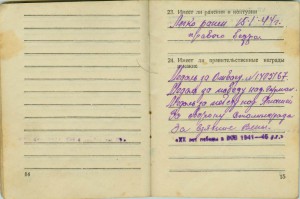 23. Имеет ли ранения и контузии
Легко ранен 15.1.44 г.
правого бедра
24. Имеет ли правительственные награды
Медаль за Отвагу N 1703167.
Медаль за победу над Герман.
Медаль за победу над Японией
За оборону Сталинграда
За взятие Вены.
«XX лет победы в ВОВ 1941—45 г.г.»
14
15